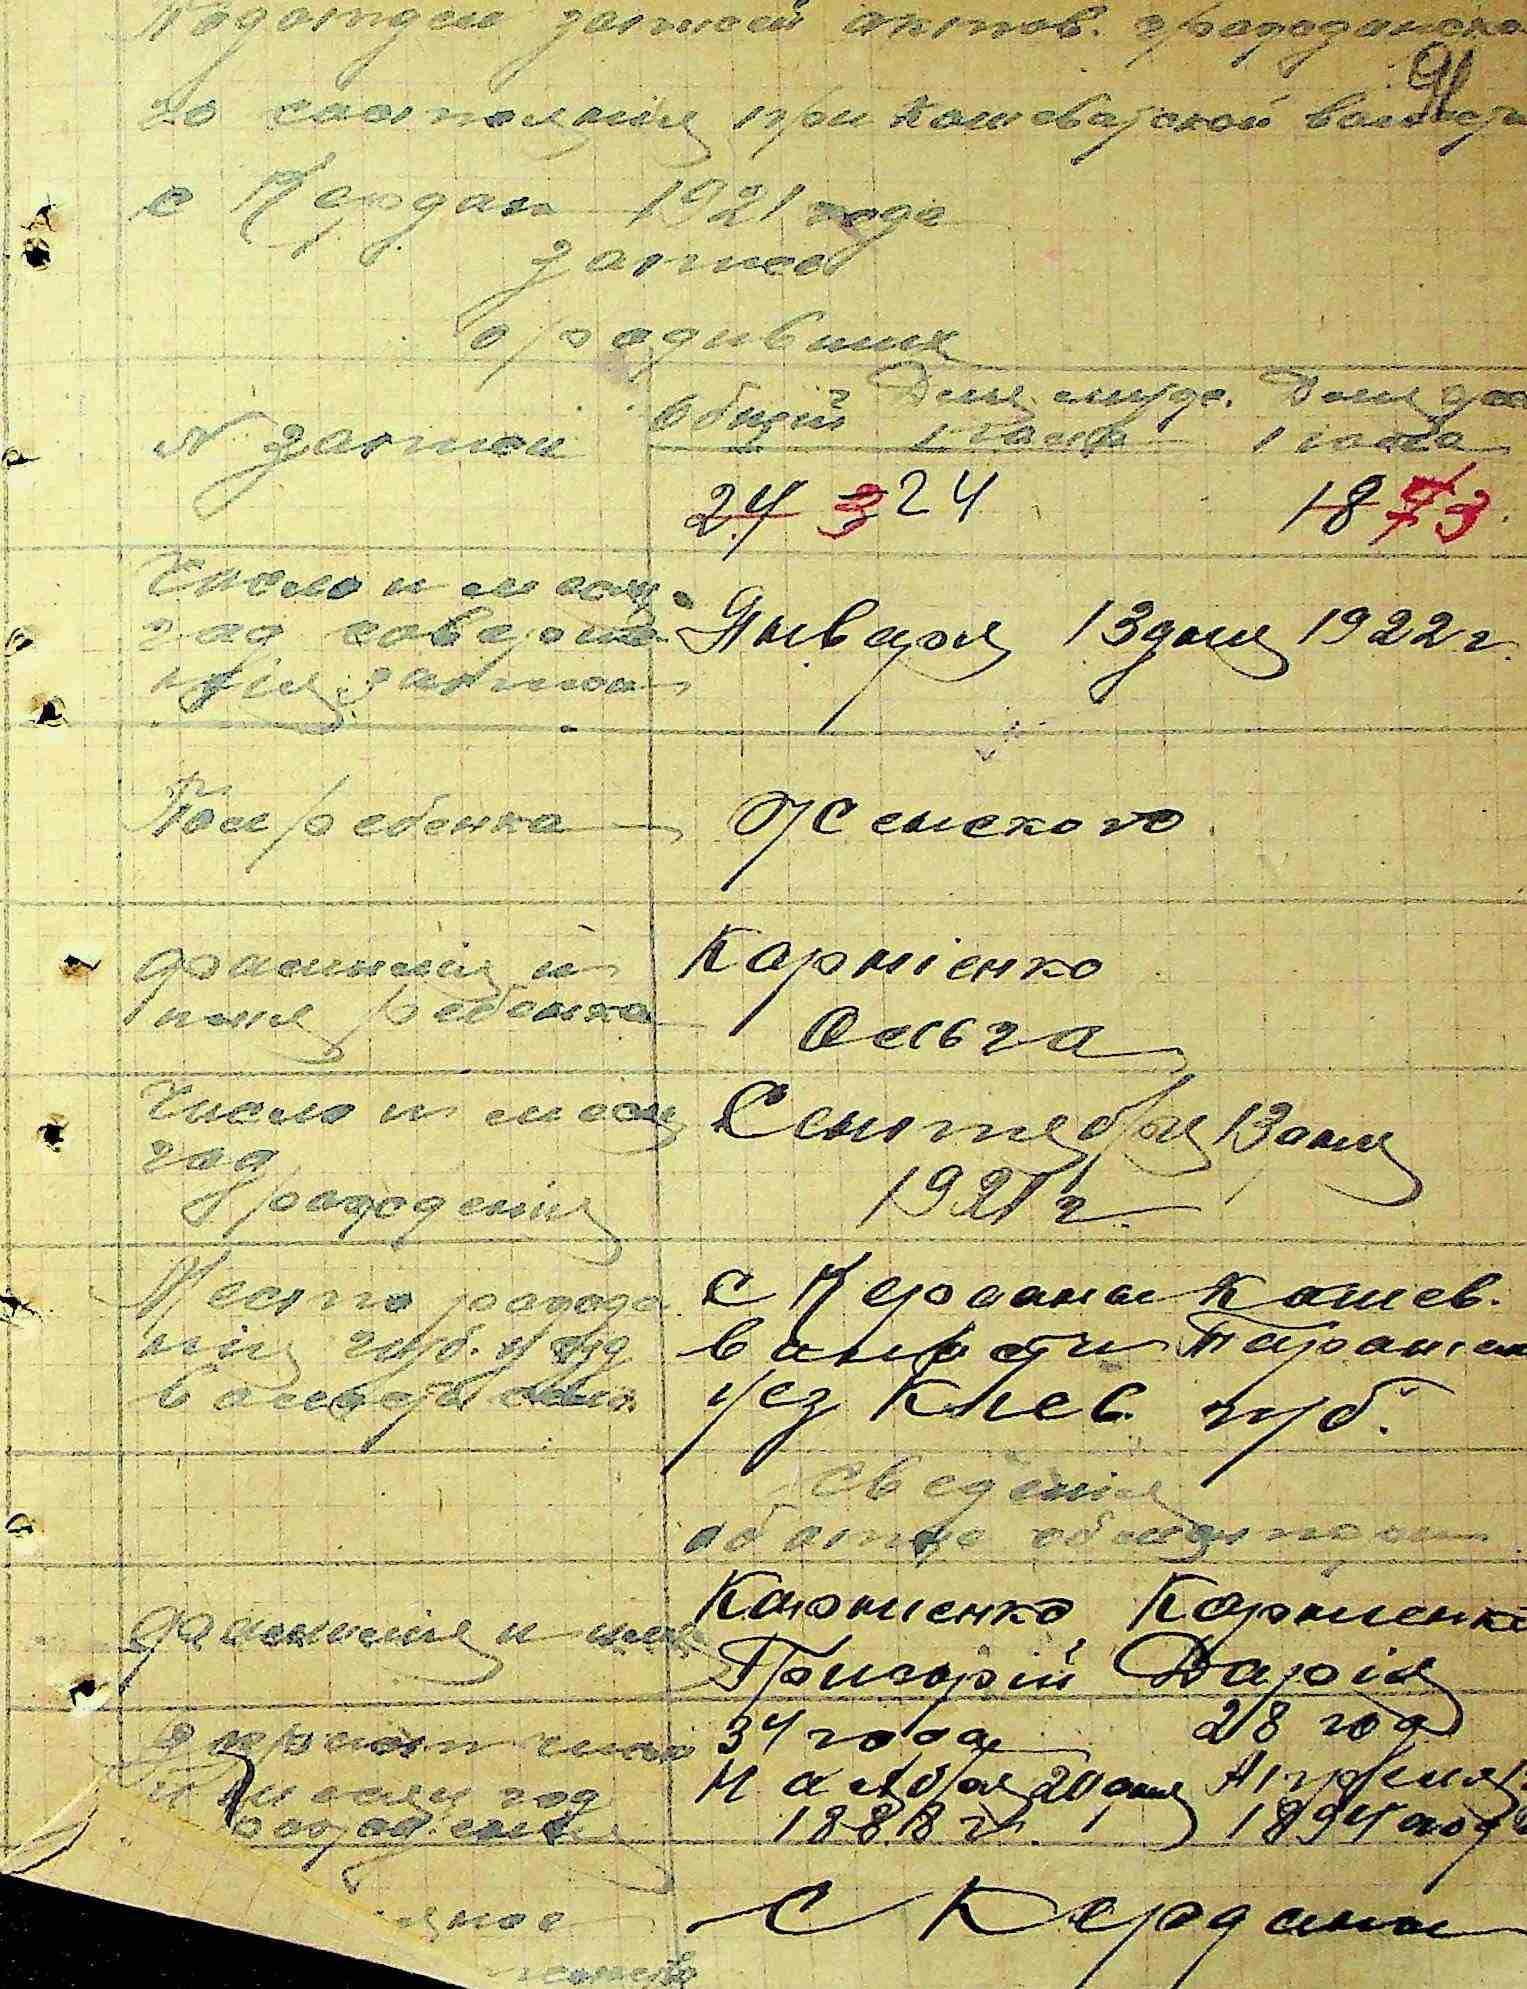 Подотдел записей актов. гражданско
91
го состояния при Кошеватской волости
с Кердан 1921 года
запись
о родивших
N записи
Общий
Для мужс.
пола
Для
пола
24 3 24
18 7 3
Число и месяц
год соверше
нія записи
Января 13 дня 1922 г.
Пол ребенка
Женского
Фамилия и
имя ребенка
Карпіенко
Ольга
Число и месяц
год
рождения
Сентября 13 дня
1921 г.
Место рожде
нія губ. уезд
волость село
с Керданы Кошев.
волости Таращан
уез Киев. губ.
Сведенія
об отце об матери
Фамилия и имя
Карпиенко
Григорій
Карпиенко
Дарія
Возраст число
и месяц год
рождения
34 года
28 год
Октября 20 дня
1888 г.
1894 года
С Керданы